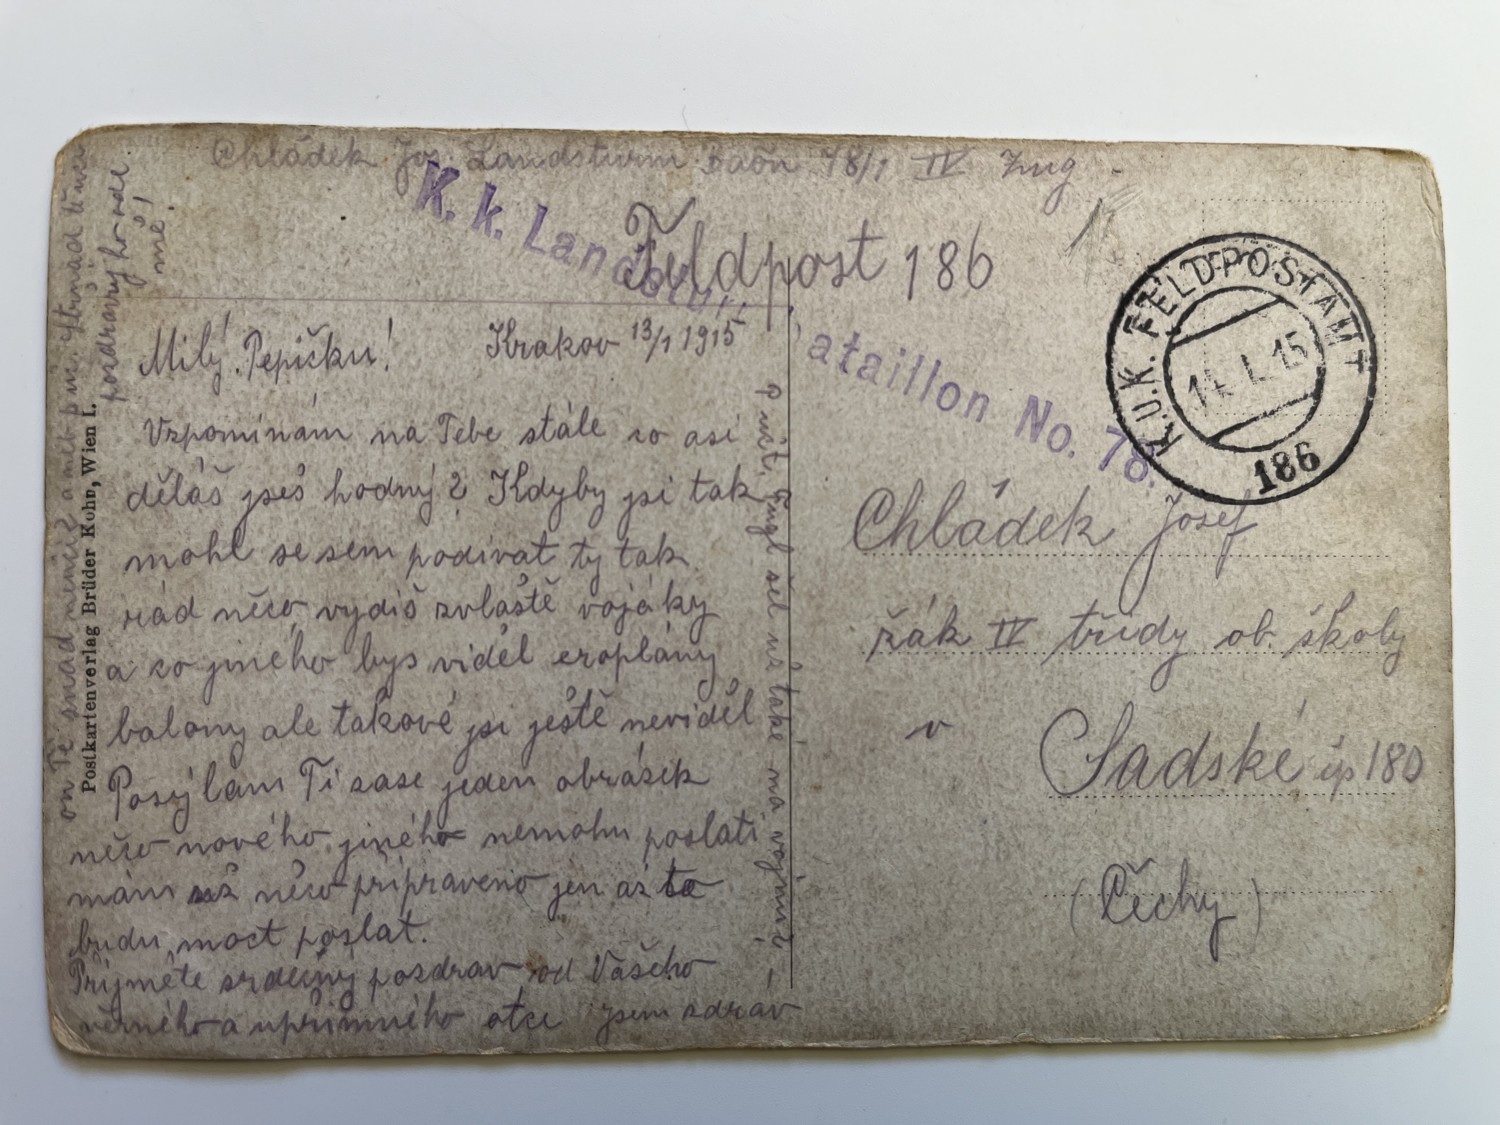 Chládek Jos. Landsturm Baõn 78/1 IV Zug
K. k. Landsturm Bataillon No. 78.
Feldpost 186
K.U.K. FELDPOSTAMT
14. I. 15
186
Milý Pepíčku! Krakov 13/1 1915
Vzpomínám na Tebe stále co asi
děláš jseš hodný? Kdyby jsi tak
mohl se sem podívat ty tak
rád něco vydíš zvláště vojáky
a co jiného bys viděl eroplány
balony ale takové jsi ještě neviděl
Posýlám Ti zase jeden obrázek
něco nového jiného nemohu poslati
mám už něco připraveno jen až to
budu moct poslat.
Prijměte srdečný pozdrav od Vašeho
věrného a upřímného otce jsem zdráv
šel na také na vojnu?
on Tě snad neučil aneb pan
pozdravy ho ode
mě!
Postkartenverlag Brüder Kohn, Wien I.
Chládek Josef
žák IV třídy ob. školy
v Sadské čp 180
(Čechy)